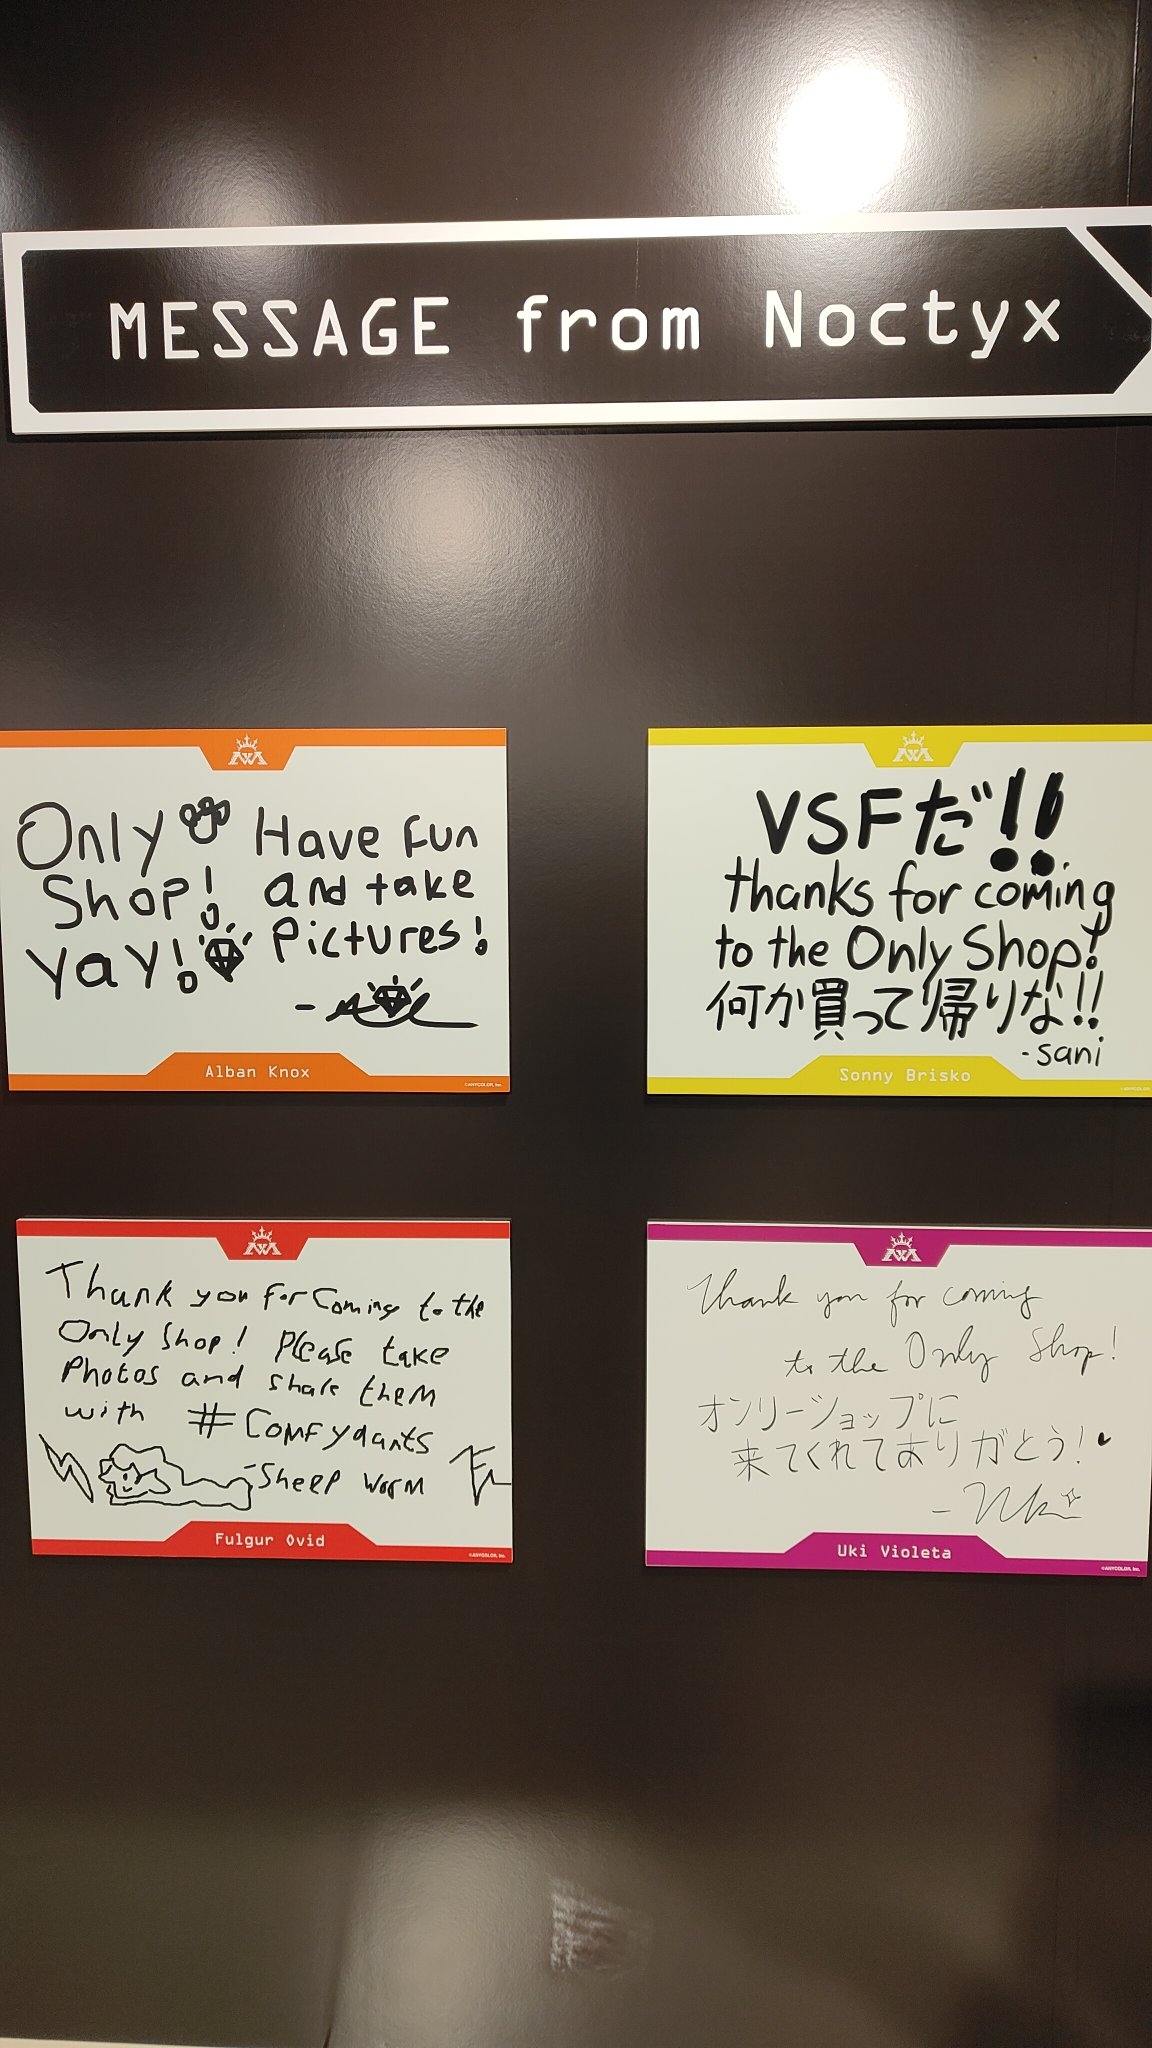 MESSAGE from Noctyx
Only Have fun
Shop! and take
YaY! Pictures!
Alban Knox
©ANYCOLOR, Inc.
VSFだ!!
thanks for coming
to the Only Shop!
何か買って帰りな!!
-sani
Sonny Brisko
Thank you for coming to the
Only Shop! Please take
Photos and share them
with #Comfydants
-Sheep worm
Fulgur Ovid
©ANYCOLOR, Inc.
Thank you for coming
to the Only Shop!
オンリーショップに
来てくれてありがとう!
-Uki
Uki Violeta
©ANYCOLOR, Inc.